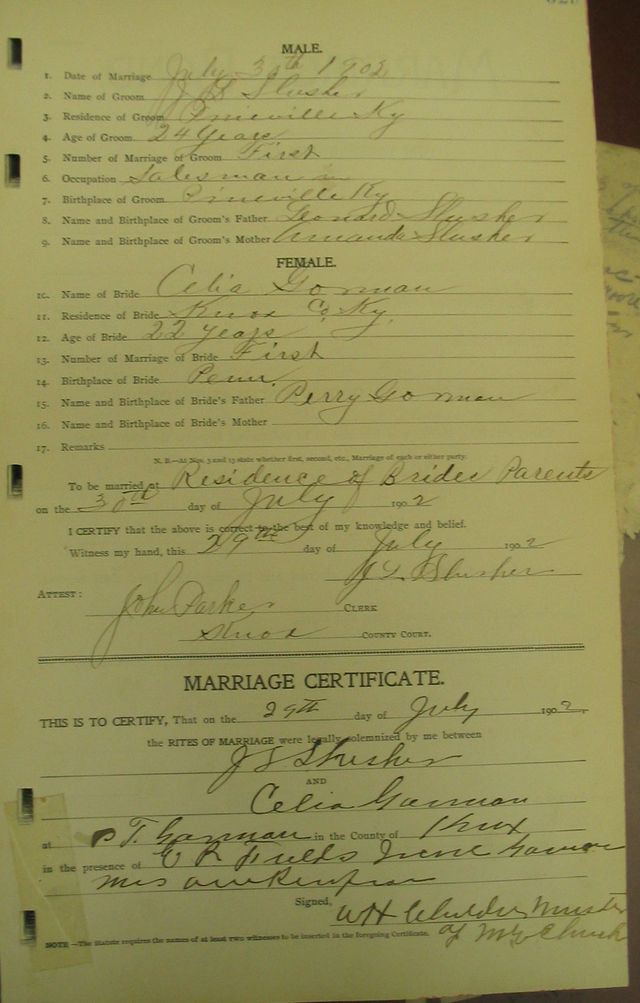 MALE.
1. Date of Marriage July 30th 1902
2. Name of Groom J. Slusher
3. Residence of Groom Pineville Ky
4. Age of Groom 24 Years
5. Number of Marriage of Groom First
6. Occupation Salesman
7. Birthplace of Groom Pineville Ky
8. Name and Birthplace of Groom's Father Leonard Slusher
9. Name and Birthplace of Groom's Mother Amanda Slusher
FEMALE.
10. Name of Bride Celia Gorman
11. Residence of Bride Knox Co Ky.
12. Age of Bride 22 years
13. Number of Marriage of Bride First
14. Birthplace of Bride Penn.
15. Name and Birthplace of Bride's Father Perry Gorman
16. Name and Birthplace of Bride's Mother
17. Remarks
N. B.—At Nos. 5 and 13 state whether first, second, etc., Marriage of each or either party.
To be married at Residence of Brides Parents
on the 30th day of July 1902
I CERTIFY that the above is correct to the best of my knowledge and belief.
Witness my hand, this 29th day of July 1902
J L Slusher
ATTEST: John Parker CLERK
Knox COUNTY COURT.
MARRIAGE CERTIFICATE.
THIS IS TO CERTIFY, That on the 29th day of July 1902.
the RITES OF MARRIAGE were legally solemnized by me between
J S Slusher
AND
Celia Garman
at P T. Garman in the County of Knox
in the presence of E R Fields Irene
Mrs
Signed, W H Childers Minister
of M. E. Church
NOTE—The Statute requires the names of at least two witnesses to be inserted in the foregoing Certificate.